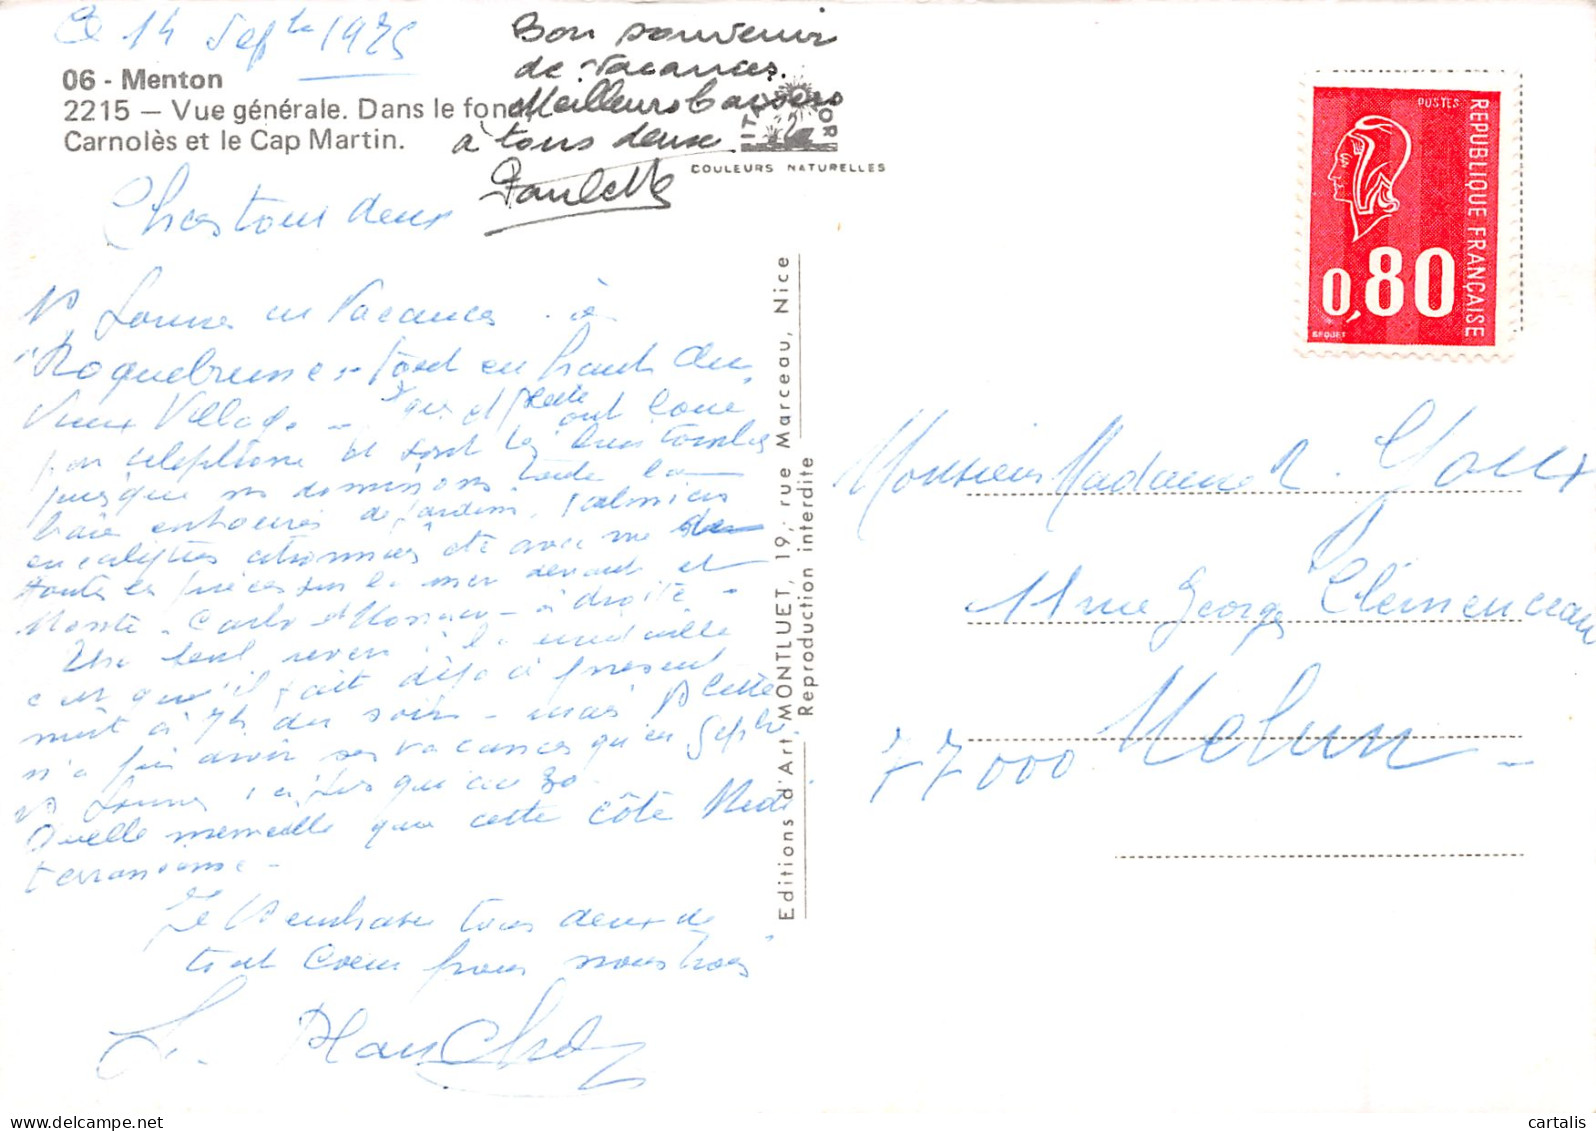 Ce 14 Septe 1975
06 - Menton
2215 – Vue générale. Dans le fond
Carnolès et le Cap Martin.
Bon souvenir
de vacances.
Meilleurs baisers
à tous deux
Paulette
COULEURS NATURELLES
Chers tous deux
Ns sommes en Vacances à
Roquebrune - tout en haut du
Vieux Village - et ont loué
par téléphone et sont bien tombés
puisque ns dominons toute la
baie entourés de jardins, palmiers
eucalyptus citronniers etc avec vue
toutes les pièces sur la mer devant et
Monte-Carlo et Monaco - à droite -
car qu'il fait déjà à présent
nuit à 7h du soir - mais Plette
n'a pu avoir ses vacances qu'en Septbre
Ns sommes ici jusqu'au 30
Quelle merveille que cette côte Medi
terranéenne -
Je Vs embrasse tous deux de
tout Coeur pour nous trois
Editions d'Art MONTLUET, 19, rue Marceau, Nice
Reproduction interdite
POSTES
REPUBLIQUE FRANÇAISE
0,80
BEQUET
Monsieur Madame R.
11 rue Georges Clémenceau
77000 Melun -
cartalis.com